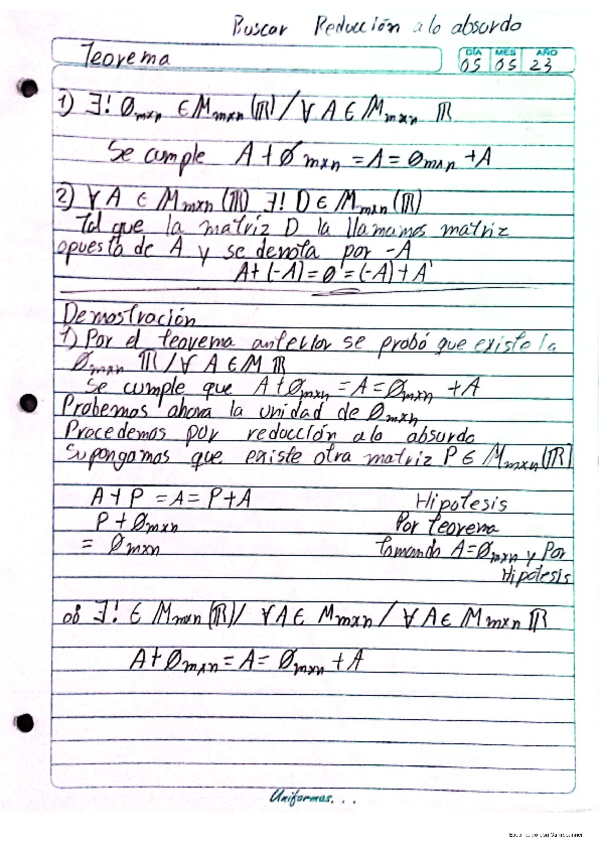 Buscar Reducción a lo absurdo
Teorema
DÍA MES AÑO
05 05 23
1) ∃! Ø_mxn ∈ M_mxn (ℝ) / ∀ A ∈ M_mxn ℝ
Se cumple A + Ø_mxn = A = Ø_mxn + A
2) ∀ A ∈ M_mxn (ℝ) ∃! D ∈ M_mxn (ℝ)
Tal que la matriz D la llamamos matriz
opuesta de A y se denota por -A
A + (-A) = Ø = (-A) + A
Demostración
1) Por el teorema anterior se probó que existe la
Ø_mxn ℝ / ∀ A ∈ M ℝ
Se cumple que A + Ø_mxn = A = Ø_mxn + A
Probemos ahora la unidad de Ø_mxn
Procedemos por reducción a lo absurdo
Supongamos que existe otra matriz P ∈ M_mxn (ℝ)
A + P = A = P + A Hipotesis
P + Ø_mxn Por teorema
= Ø_mxn tomando A = Ø_mxn y Por
Hipótesis
∃! ∈ M_mxn (ℝ) / ∀ A ∈ M_mxn / ∀ A ∈ M_mxn ℝ
A + Ø_mxn = A = Ø_mxn + A
Uniformas...